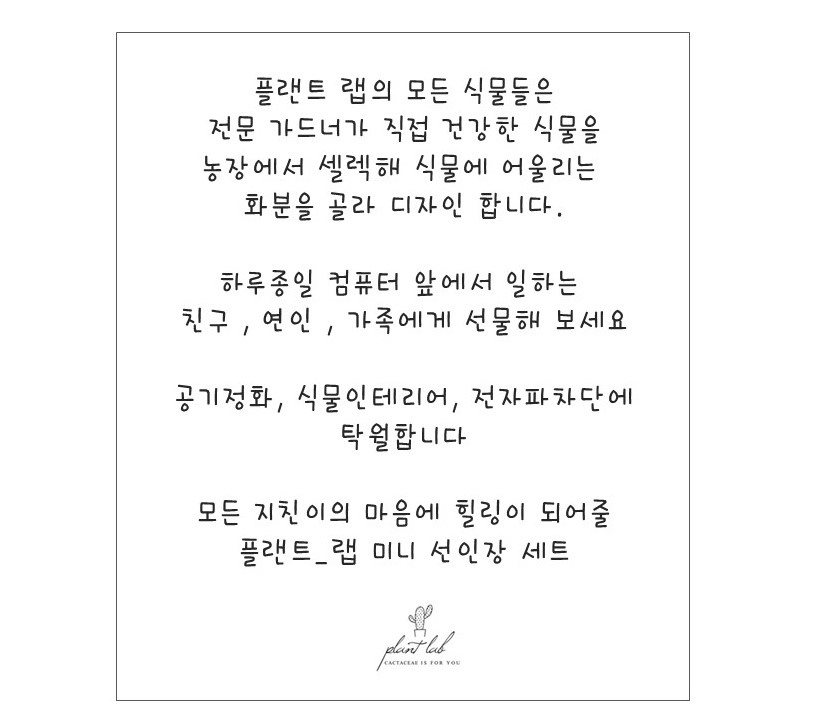 플랜트 랩의 모든 식물들은
전문 가드너가 직접 건강한 식물을
농장에서 셀렉해 식물에 어울리는
화분을 골라 디자인 합니다.
하루종일 컴퓨터 앞에서 일하는
친구 , 연인 , 가족에게 선물해 보세요
공기정화, 식물인테리어, 전자파차단에
탁월합니다
모든 지친이의 마음에 힐링이 되어줄
플랜트_랩 미니 선인장 세트
plant lab
CACTACEAE IS FOR YOU